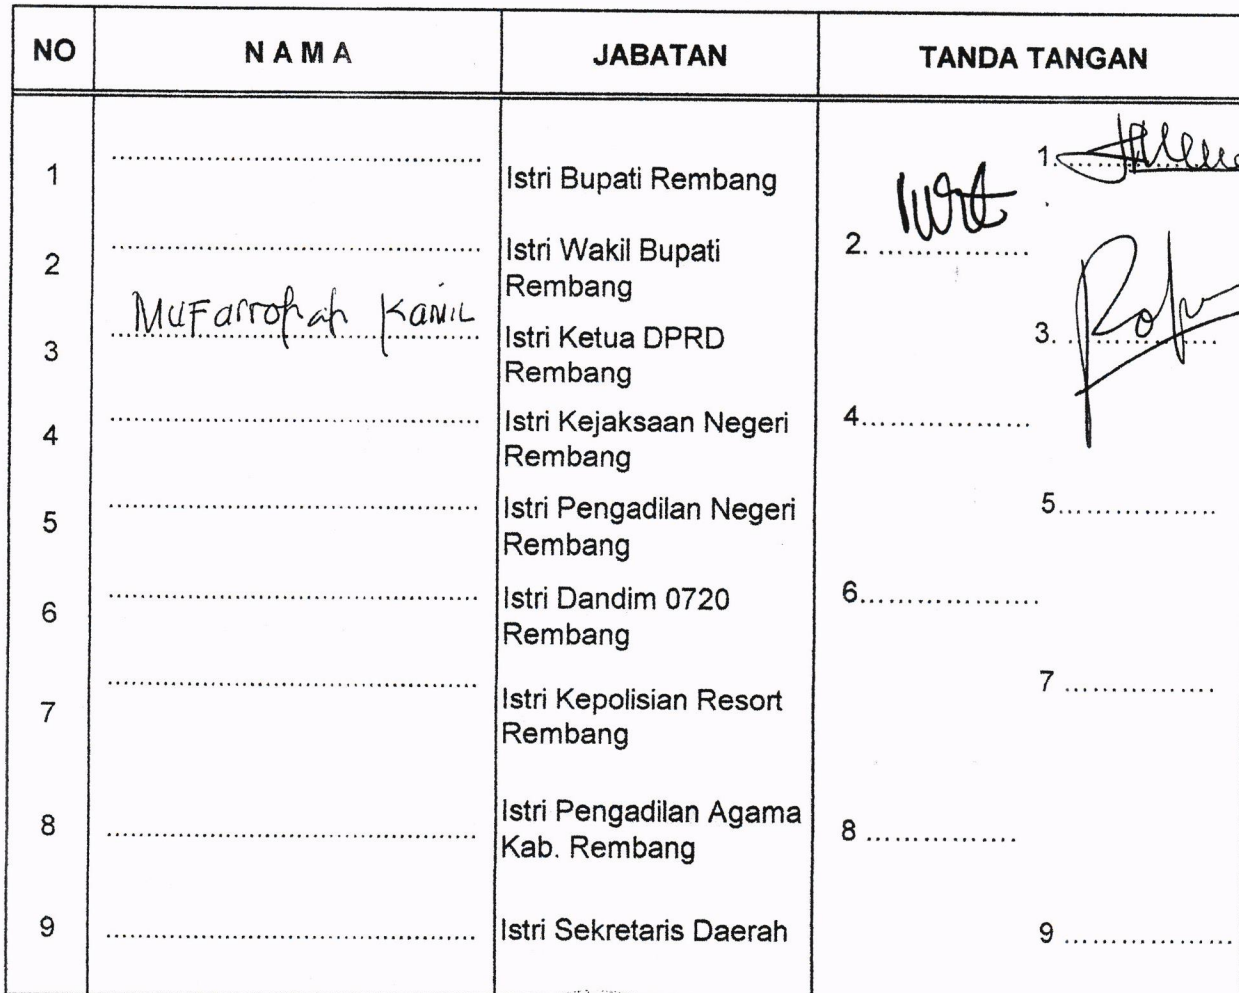 NO N A M A JABATAN TANDA TANGAN
1 .......... Istri Bupati Rembang 1..........
2 .......... Istri Wakil Bupati 2. ..........
Rembang
3 Mufarrohah Kamil Istri Ketua DPRD 3. ..........
Rembang
4 .......... Istri Kejaksaan Negeri 4..........
Rembang
5 .......... Istri Pengadilan Negeri 5..........
Rembang
6 .......... Istri Dandim 0720 6..........
Rembang
7 .......... Istri Kepolisian Resort 7 ..........
Rembang
8 .......... Istri Pengadilan Agama 8 ..........
Kab. Rembang
9 .......... Istri Sekretaris Daerah 9 ..........